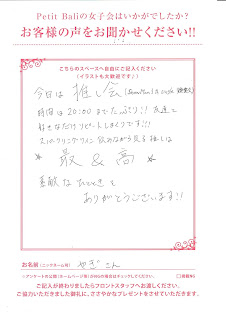 Petit Baliの女子会はいかがでしたか?
お客様の声をお聞かせください!!
こちらのスペースへ自由にご記入ください
(イラストも大歓迎です♪)
今日は 推し会
時間は20:00までたっぷり!! 友達と
好きなだけリピートしまくりです!!!
飲みながら見る推しは
最&高
素敵なひとときを
ありがとうございます!!
お名前(ニックネーム可) やぎ こん
ご記入が終わりましたらフロントスタッフへお渡しください。
ご協力いただきました御礼に、ささやかなプレゼントをさせていただきます。